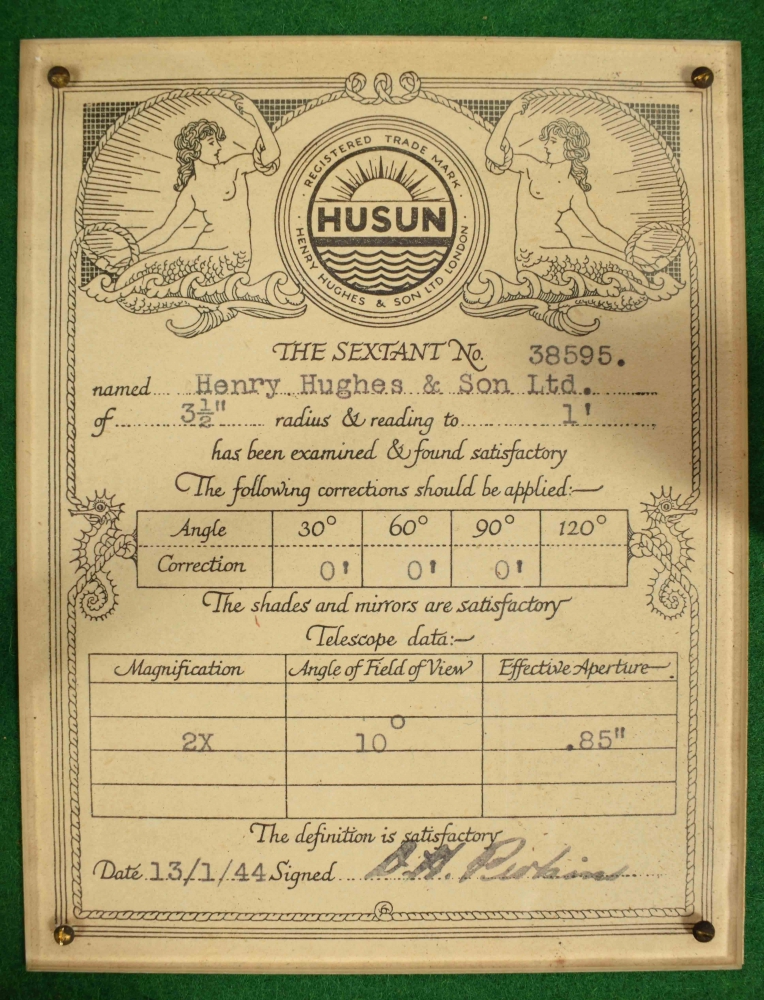 REGISTERED TRADE MARK
HUSUN
HENRY HUGHES & SON LTD LONDON
THE SEXTANT No. 38595.
named Henry Hughes & Son Ltd.
of 3½" radius & reading to 1'
has been examined & found satisfactory
The following corrections should be applied:—
Angle 30° 60° 90° 120°
Correction 0' 0' 0'
The shades and mirrors are satisfactory
Telescope data:—
Magnification Angle of Field of View Effective Aperture
2X 10° .85"
The definition is satisfactory
Date 13/1/44 Signed
6